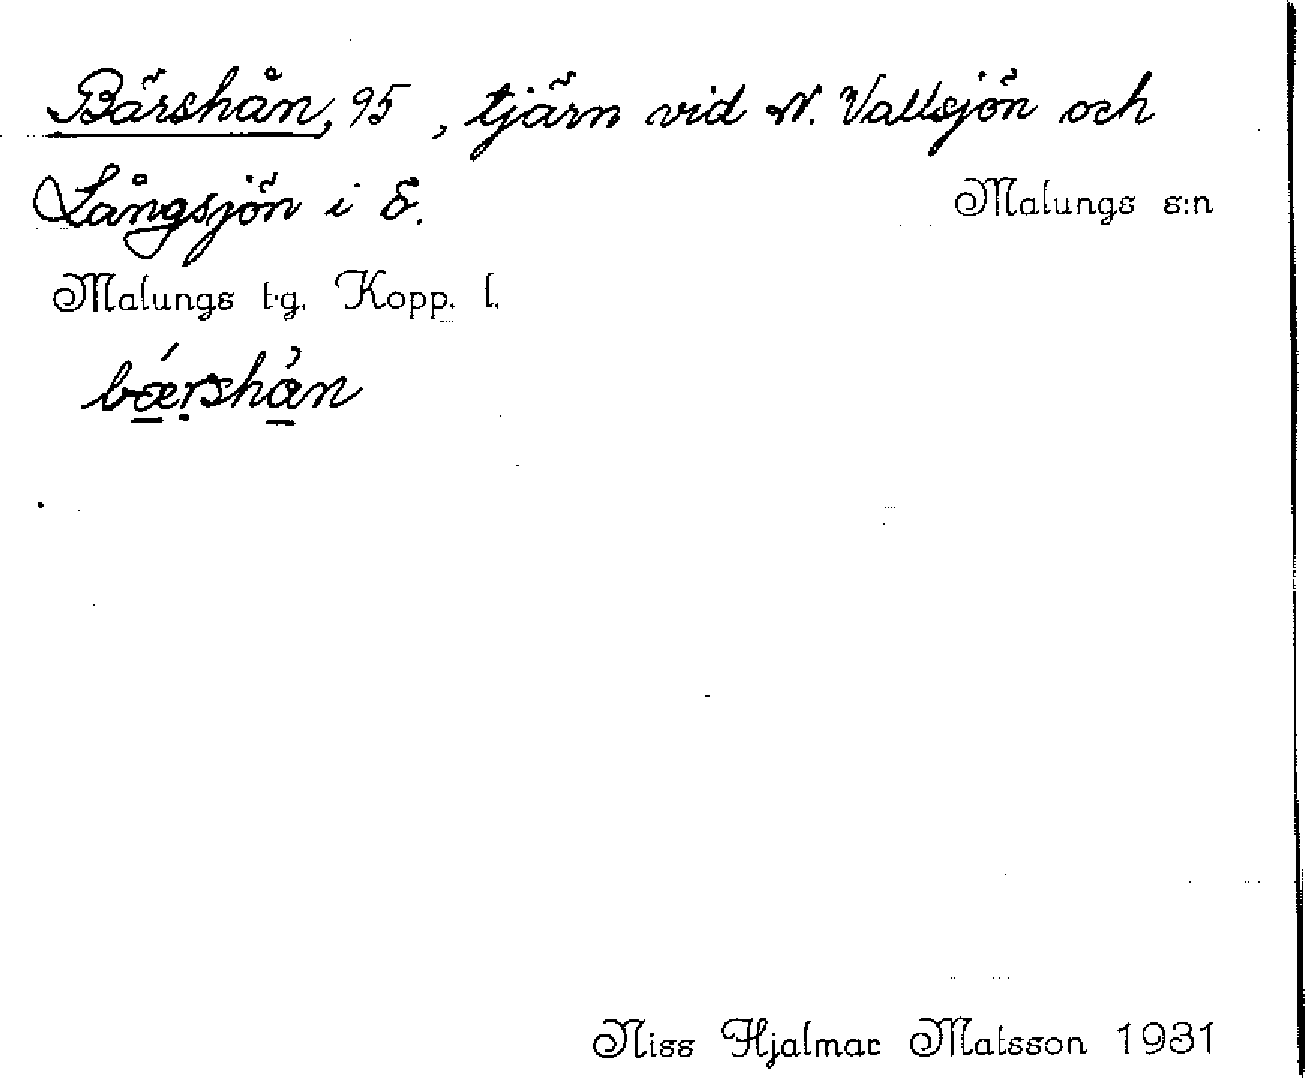 Bärshån, 95, tjärn vid N. Vallsjön och
Långsjön i Ö. Malungs s:n
Malungs t.g. Kopp. l.
bǽrshån
Niss Hjalmar Matsson 1931